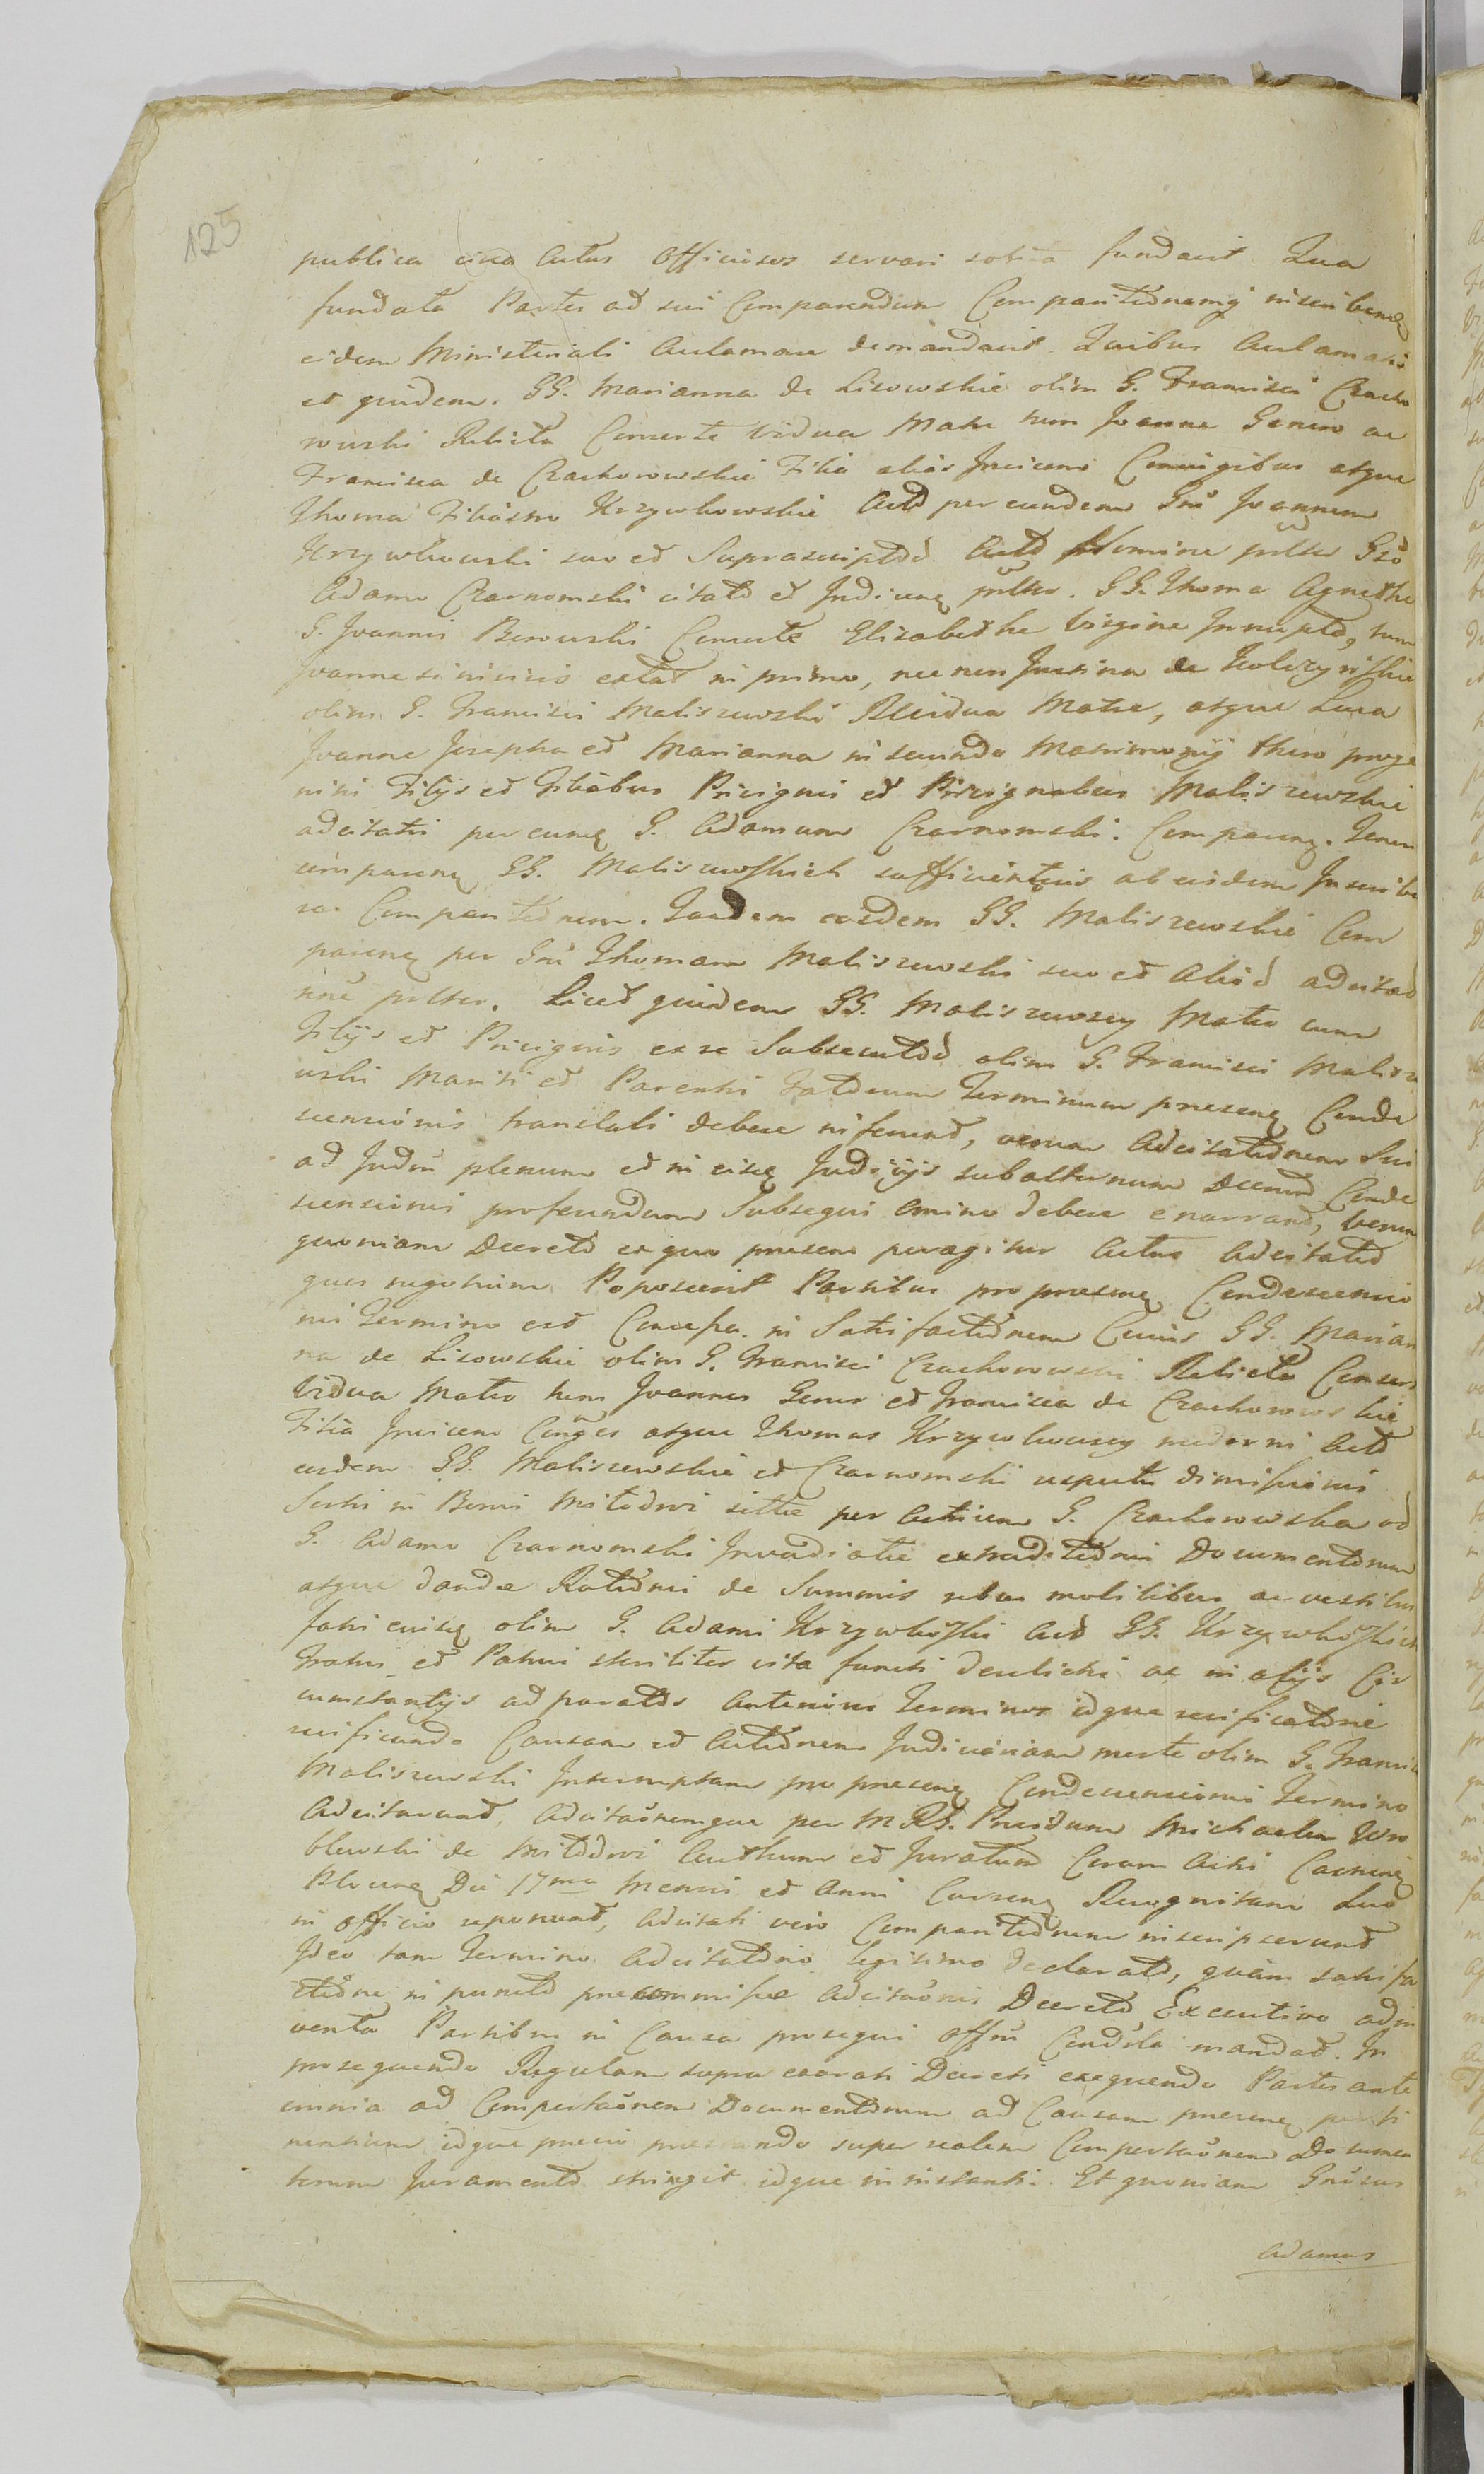 125
publica circa Actus Officiosos servari solita fundavit Qua
fundata Partes ad sui Comparendum Comparitionemq inscribend
eidem Ministeriali Acclamare demandavit. Quibus Acclamatis
et quidem. GG. Marianna de Lisowskie olim G. Francisci Czacho
rowski Relicta Consorte Vidua Matre tum Joanne Genero ac
Francisca de Czachorowskie Filia alias Invicem Conjugibus atque
Thoma Filiastro Krzywkowskie Actd per eundem Gnu Joannem
Krzywkowski suo et Suprascriptdd Actd Nomine pnlter Gso
Adamo Czarnomski citatd et Judicieq pnlter. GG. Thoma Agnethe
G. Joannis Berowski Consorte Elisabethe Virgine Innupta, tum
Joanne si inicio extat in primo, nec non Justina de
olim G. Francisci Maliszewski Matre, atque Luca
Joanne Josepha et Marianna in secundo Matrimonij thoro proge
nitis Filijs et Filiabus Privignis et Privignabus Maliszewskie
adcitatis per eumq G. Adamum Czarnomski. Comparenq.
comparenq GG. Maliszewskich sufficientius ab eisdem Inscribe
re Comparitdnem. Tandem eosdem GG. Maliszewskie Com
parenq per Gnu Thomam Maliszewski suo et Aliod adcitad
nne pnlter. Licet quidem GG. Maliszewscy Mater cum
Filijs et Privignis ex re Subsecutdd olim G. Francisci Malisze
wski Mariti et Parentis Fatdrum Terminum presenq Conde
scensionis translati debere inferunt, verum Adcitatdnem Sui
ad Judm plenum et in eisq Judicijs subalternum Decend Conde
scensionis proferendum Subsequi omnino debere enarrand, verum
quoniam Decretd ex quo presens peragitur Actus Adcitatid
quis negotium Poposcerit Partibus pro presenq Condescensio
nis Termino est Concessa. in Satisfactidnem Cuius GG. Marian
na de Lisowskie olim G. Francisci Czachorowski Relicta Consors
Vidua Mater tum Joannes Gener et Francisca de Czachorowskie
Filia Invicem Conges atque Thomas Krzywkowscy moderni Actd
eisdem GG. Maliszewskie et Czarnomski respectu dimissionis
Sortis in Bonis Mitddrvi sitte per Actricem G. Czachorowska ad
G. Adamo Czarnomski Invadiatie extraditdnis Documentdrum
atque dande Ratidnis de Summis rebus mobilibus ac vestibus
post eiusq olim G. Adami Krzywkoski Actd GG. Krzywkoskich
Fratris et Patrui steriliter vita functi derelictis ac in alijs Cir
cumstantijs ad paratds Anteriores Terminos idque reificatdrie
reificando Causam et Actidnem Judiciariam morte olim G. Francisci
Maliszewski Interruptam pro presenq Condescensionis Termino
Adcitarunt, Adcitaonemque per MRG. Providum Michaelem Wro
blewski de Mitddrvi Authum et Juratum Coram Actis
Die 17ma Mensis et Anni Currenq Recognitam Quo
in officio reponunt, Adcitati vero Comparitidnem inscripserunt
Ideo tam Termino Adcitatdrio legitimo declaratd, quam satisfa
ctidne in punctd precommissae Adcitaonis Decretd Executivo adin
venta Partibus in Causa prosequi offm Condsla mandat. In
prosequendo Regulam supra exarati Decreti exequendo Partes ante
omnia ad Comportaonem Documentdrum ad Causam presenq perti
nentium idque previo prestando super realem Comportaonem Documen
torum Juramentd stringit idque in instanti. Et quoniam Gnosus
Adamus